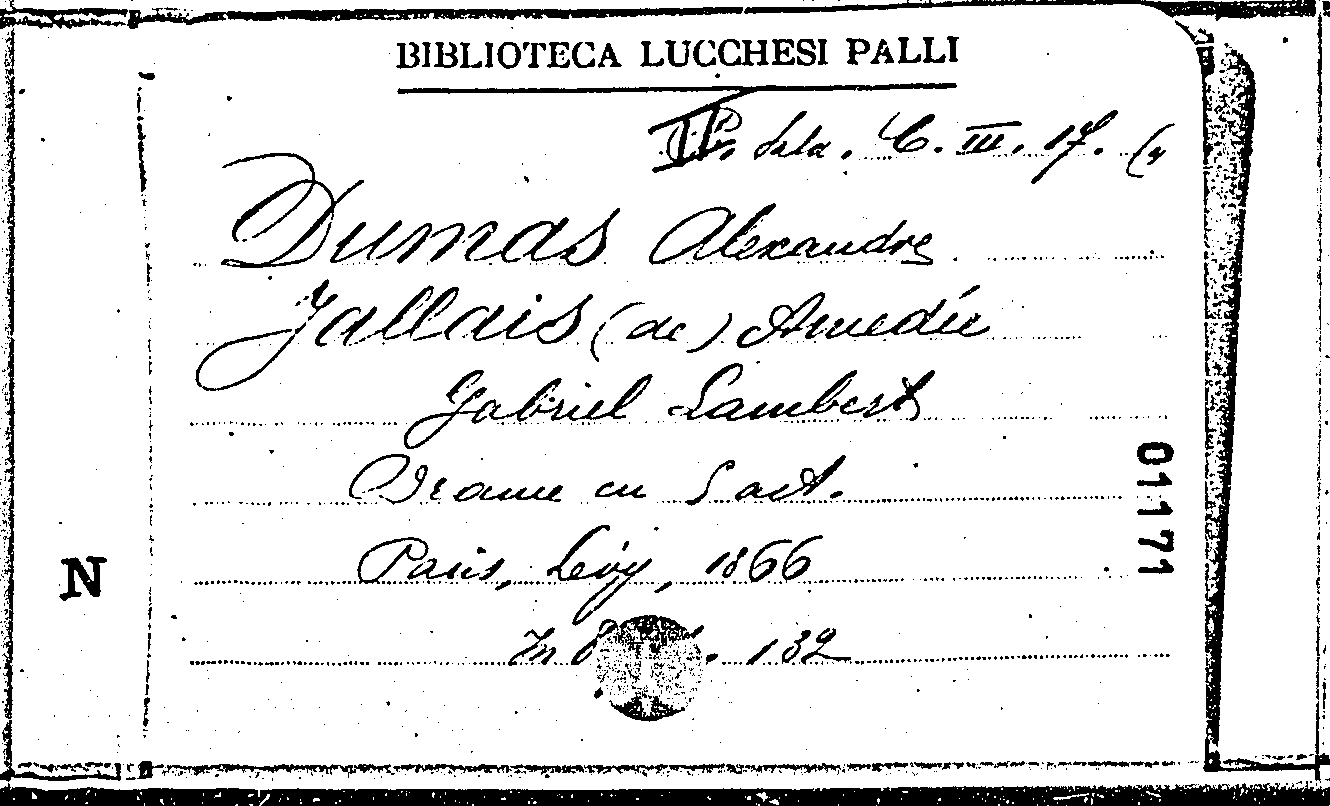 BIBLIOTECA LUCCHESI PALLI
II. Sala. C. III. 17. (4
Dumas Alexandre
Jallais (de) Amedée
Gabriel Lambert
Drame en 5 act.
Paris, Lévy, 1866
In 8 . 132
01171
N